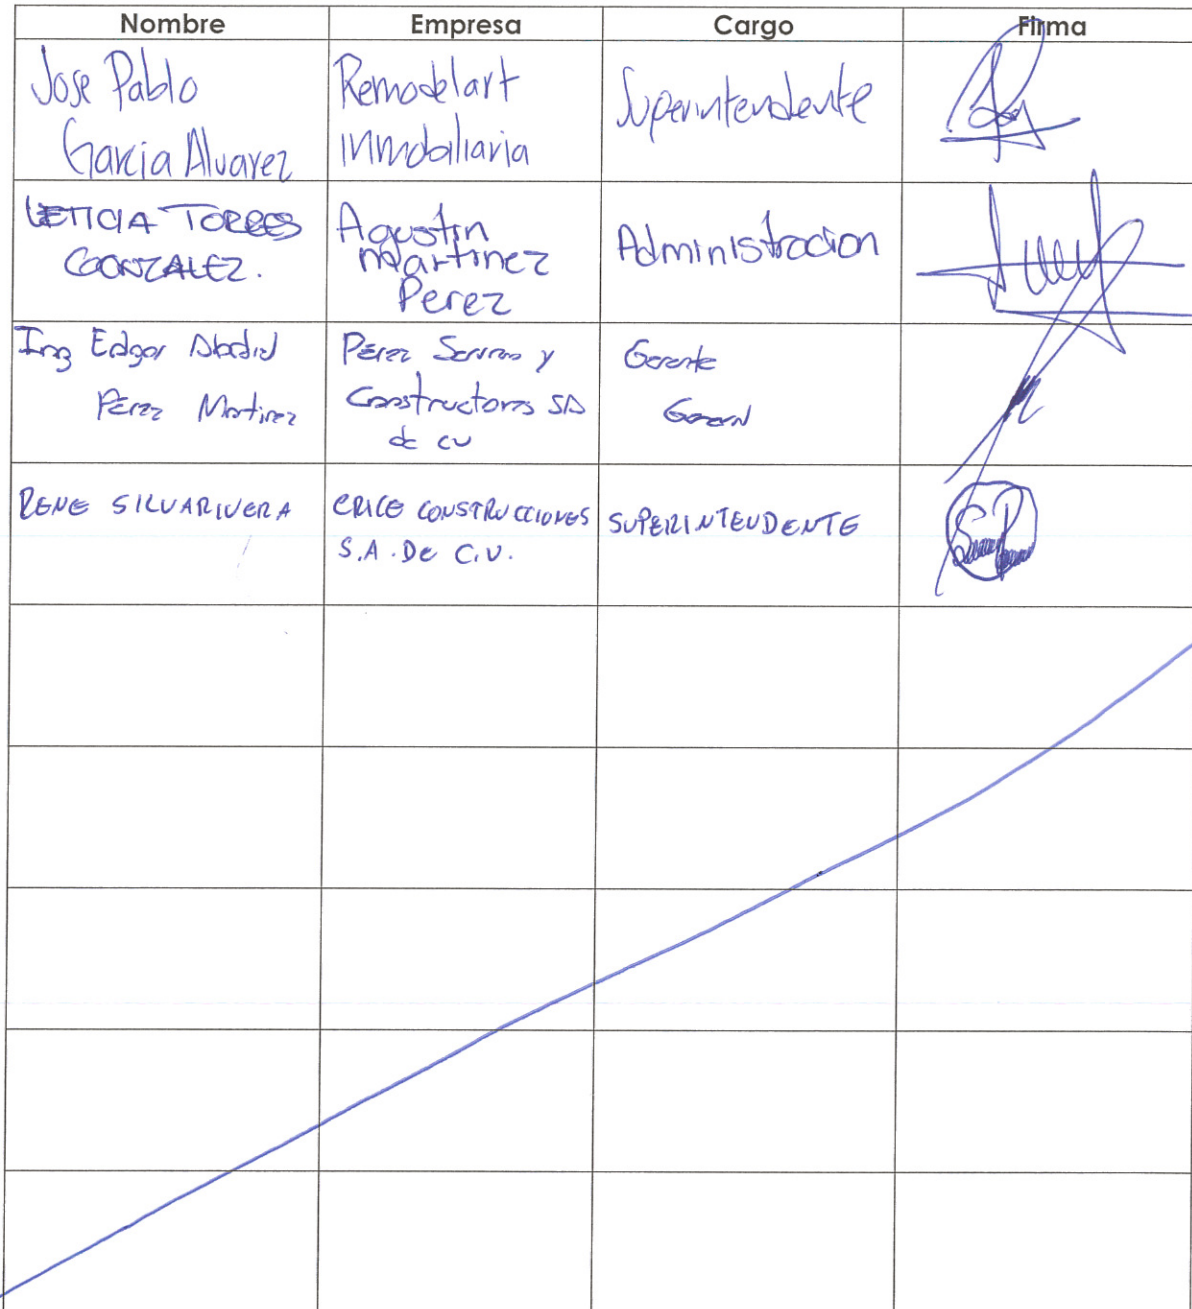 Nombre Empresa Cargo Firma
Jose Pablo
Garcia Alvarez
Remodelart
Inmobiliaria
Superintendente
LETICIA TORRES
GONZALEZ.
Agustin
Martinez
Perez
Administracion
Ing Edgar
Pérez Martinez
Pérez y
Constructores SA
de cv
Gerente
General
RENE SILVA RIVERA
ERICE CONSTRUCCIONES
S.A. DE C.V.
SUPERINTENDENTE